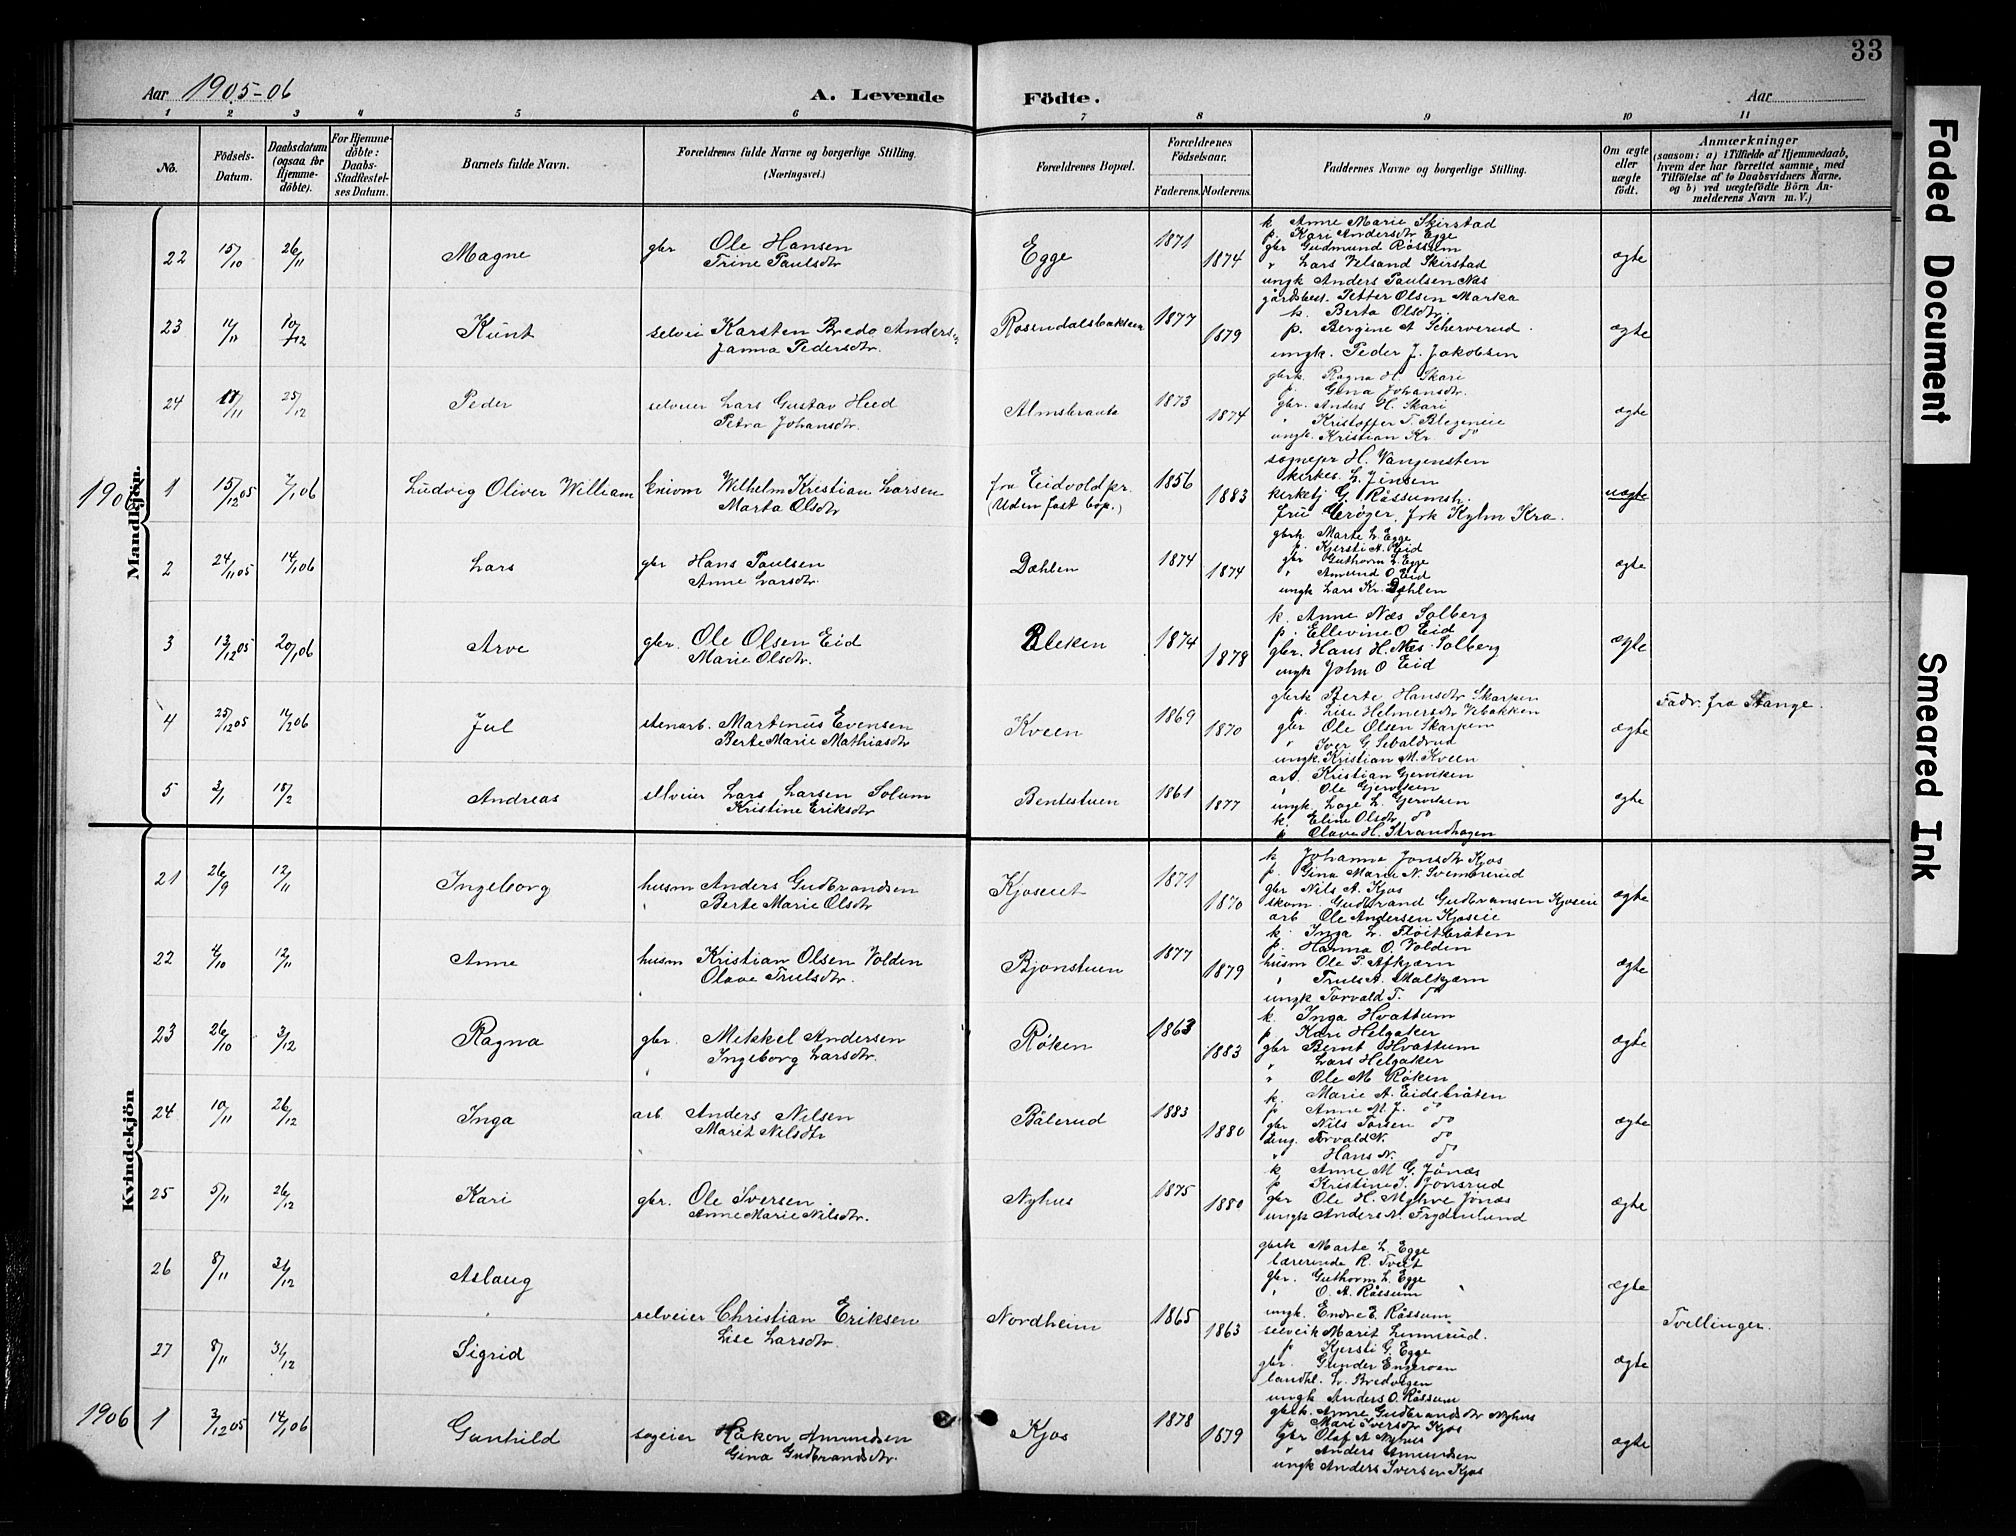 33
Aar 1905-06
A. Levende Födte.
Aar
1 2 3 4 5 6 7 8 9 10 11
No.
Födsels-Datum.
Daabsdatum (ogsaa for Hjemme-döbte).
For Hjemme-döbte: Daabs-Stadfestel-ses Datum.
Barnets fulde Navn.
Forældrenes fulde Navne og borgerlige Stilling.
(Næringsvei.)
Forældrenes Bopæl.
Forældrenes Födselsaar.
Faderens. Moderens.
Faddernes Navne og borgerlige Stilling.
Om ægte eller uægte födt.
Anmærkninger
(saasom: a) i Tilfælde af Hjemmedaab,
hvem der har forrettet samme, med
Tilföielse af to Daabsvidners Navne,
og b) ved uægtefödte Börn An-
melderens Navn m. V.)
Mandkjön.
22 15/10 26/11 Magne gbr Ole Hansen
Trine Paulsdtr Egge 1871 1874 ægte
k Anne Marie Skjerstad
p. Kari Andersdtr Egge
gbr Gudmund Røssum
" Lars Velsand Skirstad
ungk Anders Paulsen Næs
23 11/11 10/12 Kunt selvei Karsten Bredo Anders
Janna Pedersdtr. Rosendalsbakken 1877 1879 ægte
gårdbest. Petter Olsen Marka
k. Berta Olsdtr
p. Bergine A Scherverud
ungk. Peder J. Jakobsen
24 11/11 25/12 Peder selveier Lars Gustav Heed
Petra Johansdtr. Almsbrauta 1873 1874 ægte
gbrk. Ragna H. Skari
p. Gina Johansdtr.
gbr. Anders H. Skari
" Kristoffer T. Blegeneie
ungk. Kristian Kr. do
1906
1 15/12 05 7/1 06 Ludvig Oliver William Enkem Wilhelm Kristian Larsen
Marta Olsdtr fra Eidvold pr.
(Uden fast bop.) 1856 1883 uægte
sognepr H. Vangensten
kirkes. L. Jensen
kirketj G. Røssumsh.
fru Crøger, frk Kylm Kra.
2 24/11 05 14/1 06 Lars gbr Hans Paulsen
Anne Larsdtr. Dæhlen 1874 1874 ægte
gbrk. Marte L. Egge
p. Kjersti A. Eid
gbr Guthorm L Egge
" Amund O. Eid
ungk Lars Kr. Dæhlen
3 13/12 05 20/1 06 Arve gbr. Ole Olsen Eid
Marie Olsdtr. Bleken 1874 1878 ægte
k. Anne Næs Solberg
p. Ellevine O Eid
gbr. Hans H. Næs Solberg
ungk John O Eid
4 25/12 05 11/2 06 Jul stenarb. Martinus Evensen
Berte Marie Mathiasdtr Kveen 1869 1870 ægte Fadr. fra Stange.
gbrk Berte Hansdtr Skarpen
p. Lise Helmersdtr Vebakken
gbr Ole Olsen Skarpen
" Iver G Sebaldrud
ungk. Kristian M. Kveen
5 3/1 18/2 Andreas selveier Lars Larsen Solum
Kristine Eriksdtr Bentestuen 1861 1877 ægte
arb. Kristian Gjerviken
" Ole Gjerviken
ungk. Lage L. Gjerviken
k. Eline Olsdtr do
p Olava H. Strandhagen
Kvindekjön
21 26/9 12/11 Ingeborg husm Anders Gudbrandsen
" Berte Marie Olsdtr Kjoseiet 1871 1870 ægte
k Johanne Jonsdtr Kjos
p. Gina Marie N. Svembrerud
gbr Nils A. Kjos
skom. Gudbrand Gudbransen Kjoseie
arb Ole Andersen Kjoseie
22 4/10 12/11 Anne husm Kristian Olsen Volden
Olave Trulsdtr. Bjonstuen 1877 1879 ægte
k. Inga L. Fløitbråten
p. Hanna O. Volden
husm Ole P. Afkjærn
" Truls A. Molkjærn
ungk Torvald T. do
23 26/10 3/12 Ragna gbr. Mikkel Andersen
" Ingeborg Larsdtr. Røken 1863 1883 ægte
k. Inga Hvattum
p. Kari Helgaker
gbr Bernt Hvattum
" Lars Helgaker
" Ole M. Røken
24 10/11 26/12 Inga arb Anders Nilsen
Marit Nilsdtr Bålerud 1883 1880 ægte
k. Marie A. Eidsbråten
p Anne M. J. do
gbr Nils Torsen do
ung. Torvald N. do
" Hans N. do
25 5/11 26/12 Kari gbr. Ole Iversen
Anne Marie Nilsdtr. Nyhus 1875 1880 ægte
k Anne M G. Jønæs
p Kristine I. Jonsrud
gbr Ole H. Myhve Jønæs
ungk Anders N. Frydenlund
26 8/11 31/12 Aslaug ægte
gbrk Marte L. Egge
lærerinde R. Tveit
gbr. Guthorm L. Egge
" O. A. Røssum
ungk. Endre E. Røssum
selveier Christian Eriksen
Lise Larsdtr. Nordheim 1865 1863 Tvillinger.
27 8/11 31/12 Sigrid ægte
selveik Marit Linnerud.
p Kjersti G. Egge
gbr. Gunder Engeroen
landhl. L. Bredvegen
ungk Anders O. Røssum
1906 1 3/12 05 14/1 06 Gunhild sageier Håkon Amundsen
Gina Gudbrandsdtr. Kjos 1878 1879 ægte
gbrk. Anne Gudbrandsdtr Nyhus
p. Mari Iversdtr Kjos
gbr Olaf A Nyhus
" Anders Amundsen
ungk Anders Iversen Kjos
Faded Document
Smeared Ink